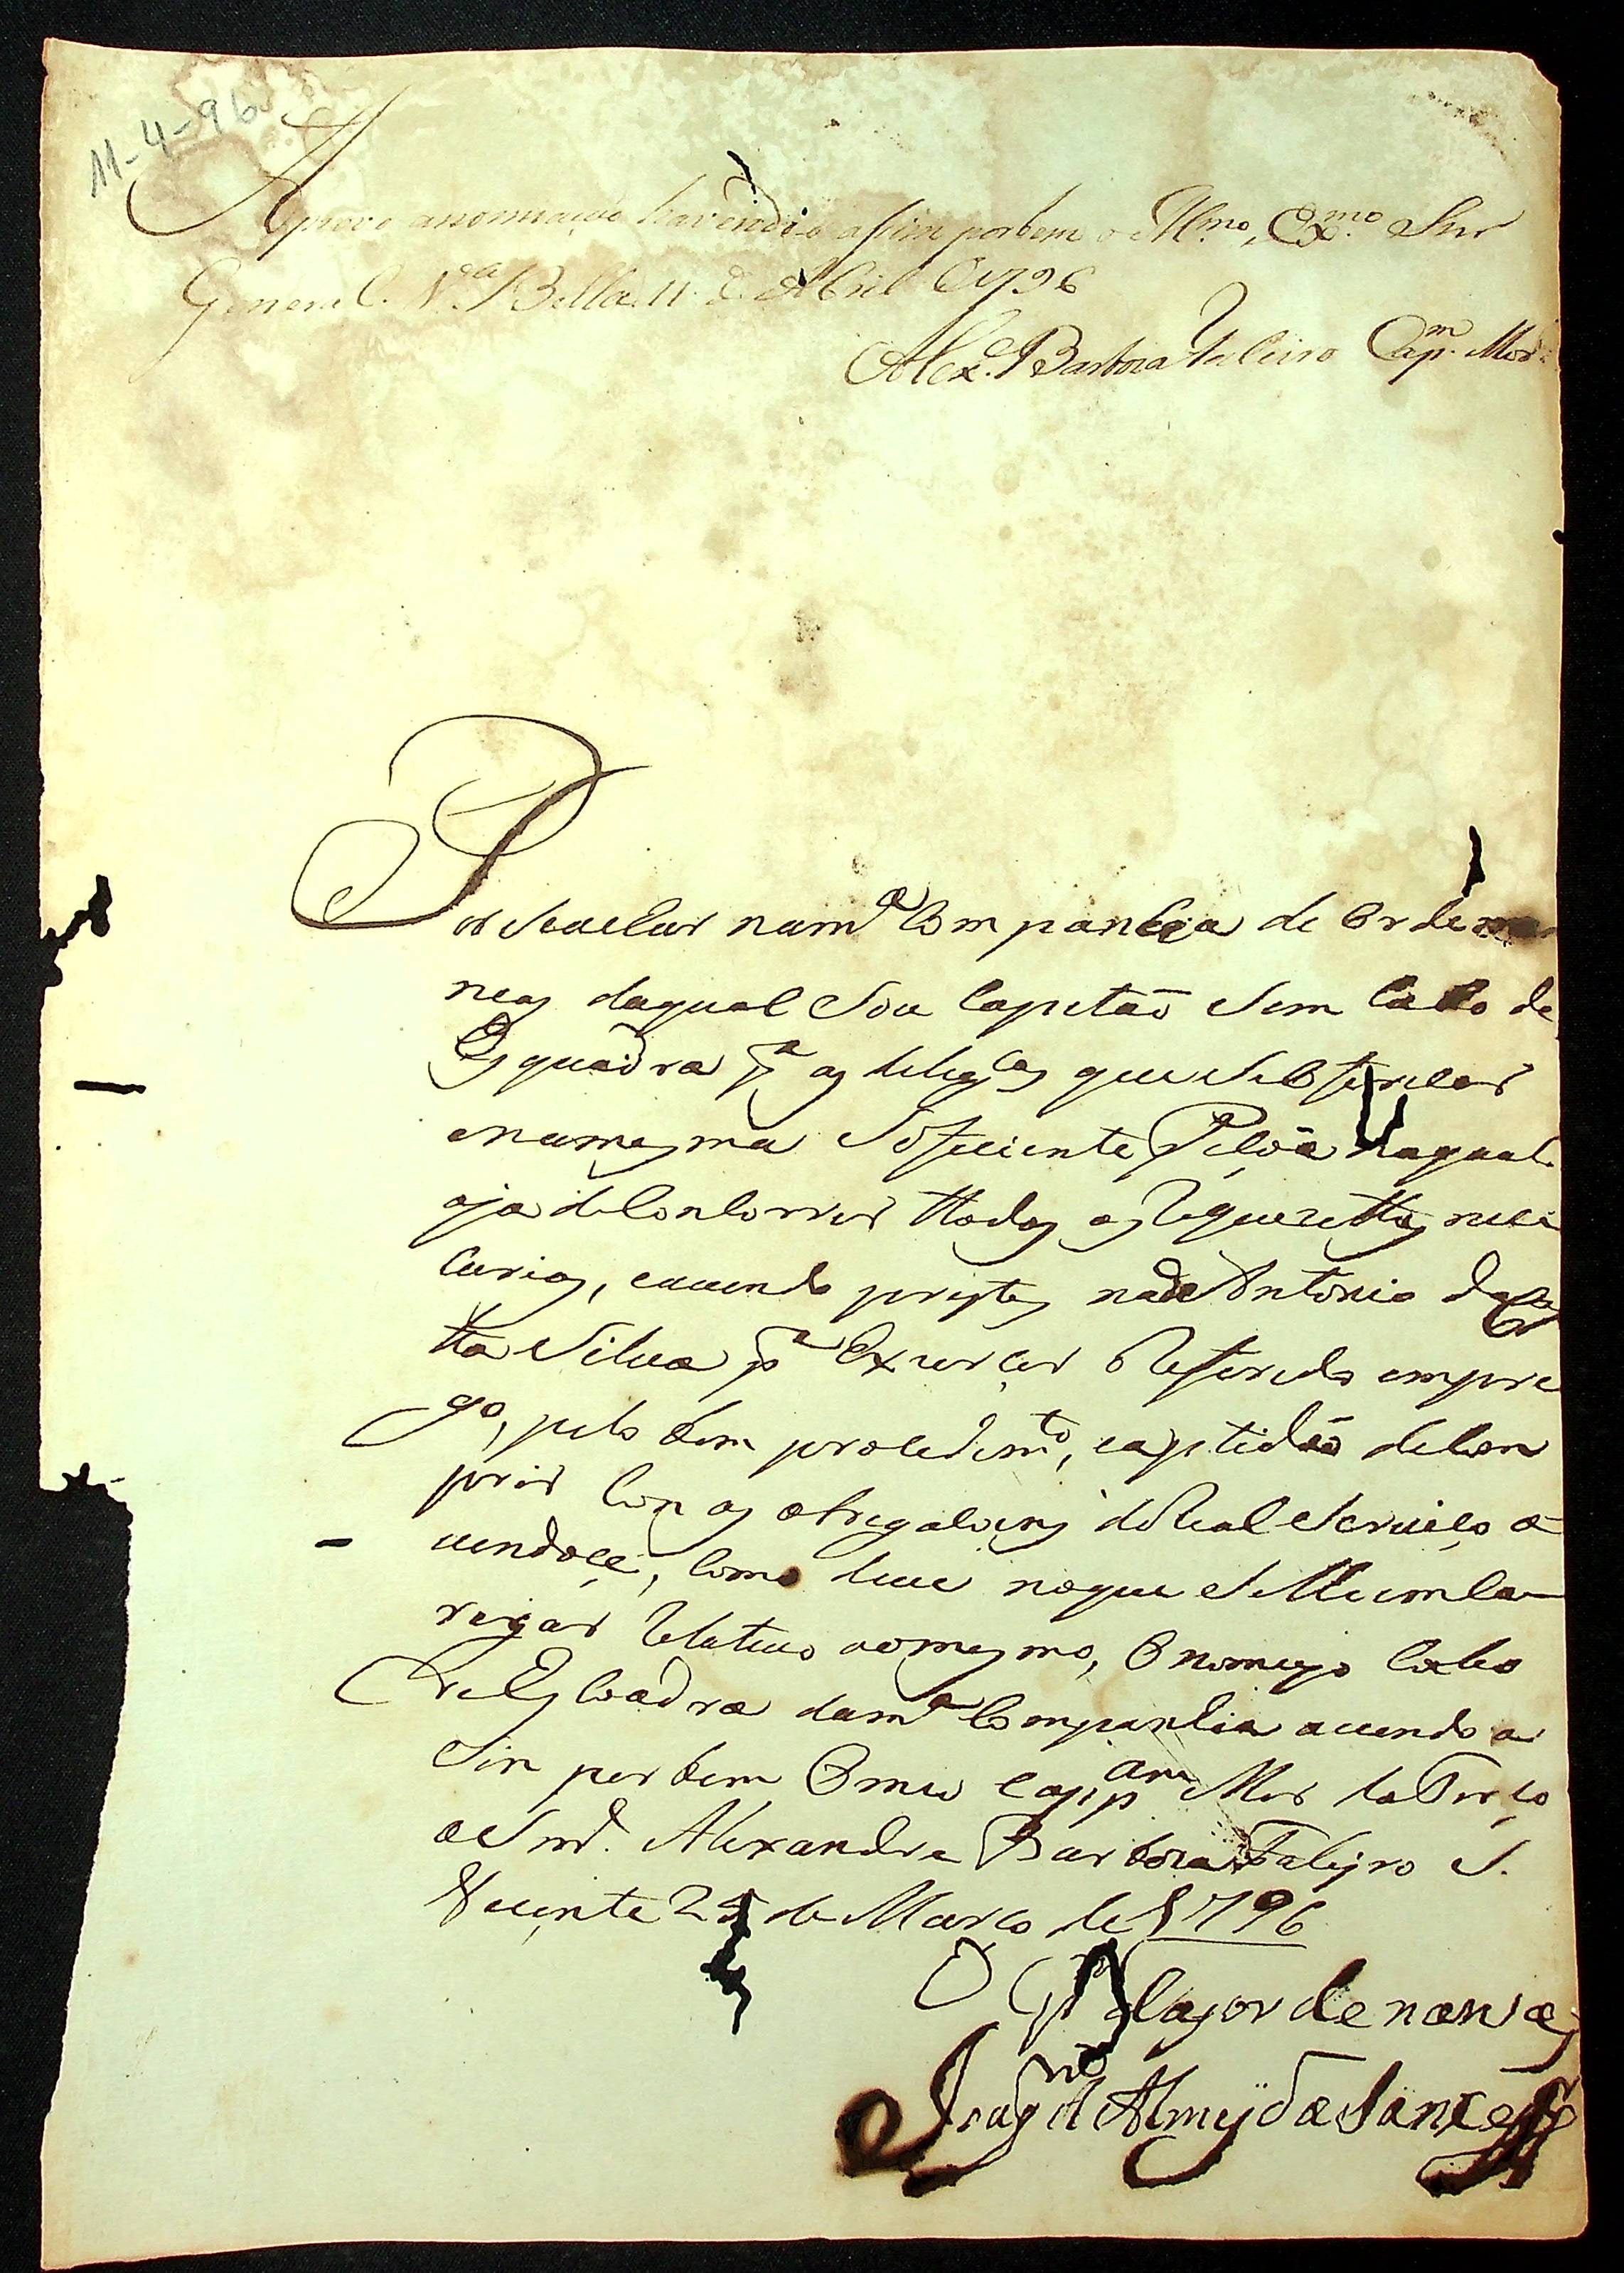 11-4-96
Aprovo anomiação havendo assim porbem o Illmo, Exmo Snr
General. Va Bella 11 de Abril de 1796
Alexe Barboza Faleiro Capm Mor
Por Seaclar nama Companhia de Ordena
neas daqual Sou Capitaõ Sem Cabo de
Esquadra pa as deligcas que Se
enamesma Soficiente Pesoa naqual
aja deConlorrer ttodos os Requezittos nece
carios, eauendo Antonio da Cos
tta Silua pa Exerçer O Referido empre
go, pelo bom prosedimto, eaptidaõ deCom
prir Com as obrigaloins do Real Seruiço a
uendoce, Como deue noque Selleemca
regar Relatiuo aomesmo, O nomeyo Cabo
de Escoadra dama Companhia auendo a
Sin por bem O meu Cappam Mor
oSnr. Alexandre Barboza Faleyro S.
Vicente 25 de Março de 1796
O Cpm dasordenansas
de Almeyda Sanxes